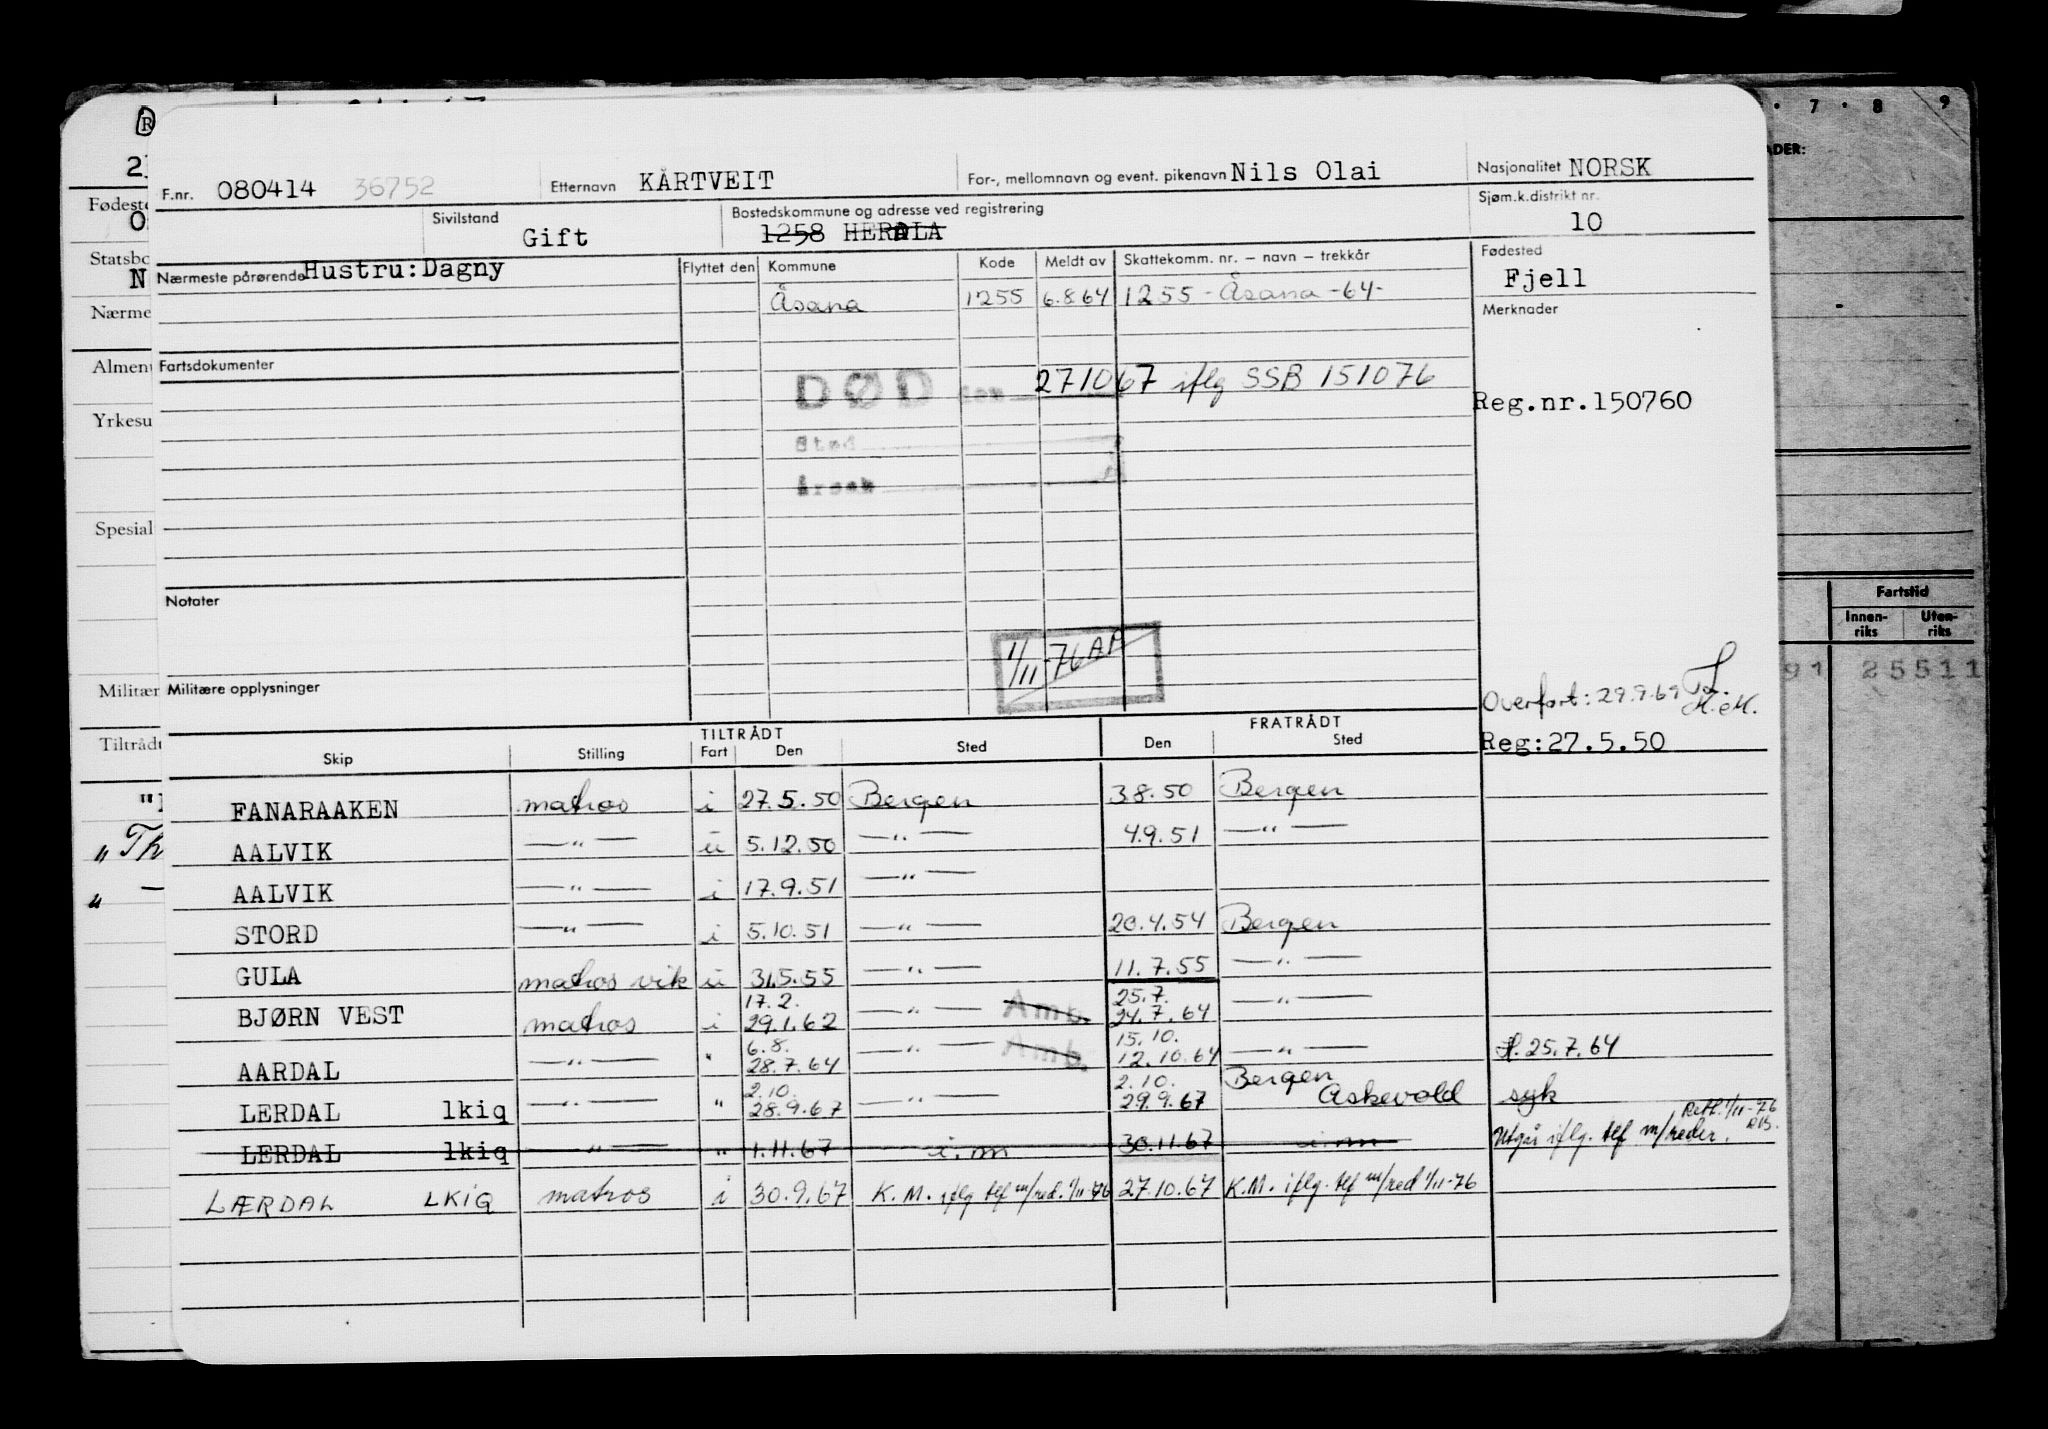 7 · 8 9
ADER:
F.nr. 080414 36752 Etternavn KÅRTVEIT For-, mellomnavn og event. pikenavn Nils Olai Nasjonalitet NORSK
Sivilstand Gift Bostedskommune og adresse ved registrering 1258 HERDLA Sjøm.k.distrikt nr. 10
Nærmeste pårørende Hustru: Dagny Flyttet den Kommune Kode Meldt av Skattekomm. nr. – navn – trekkår Fødested Fjell
Åsana 1255 6.8.64 1255 - Åsana -64-
Merknader
Fartsdokumenter
DØD den 271067 iflg SSB 151076
Reg.nr.150760
Sted
Årsak
Fødeste
Statsbo
Nærme
Almen
Yrkesu
Spesial
Militær
Tiltrådt
Fartstid
Innen-riks Uten-riks
91 25511
Notater
1/11-76 AP
Militære opplysninger
Overført: 29.9.69
H.M.
Reg:27.5.50
TILTRÅDT FRATRÅDT
Skip Stilling Fart Den Sted Den Sted
FANARAAKEN matros i 27.5.50 Bergen 3.8.50 Bergen
AALVIK —"— u 5.12.50 —"— 4.9.51 —"—
AALVIK —"— i 17.9.51 —"—
STORD —"— i 5.10.51 —"— 20.4.54 Bergen
GULA matros vik u 31.5.55 —"— 11.7.55 —"—
17.2. 25.7.
BJØRN VEST matros i 29.1.62 —"— Amb. 24.7.64 —"—
6.8. 15.10.
AARDAL —"— " 28.7.64 —"— Amb. 12.10.64 —"— 25.7.64
2.10. 2.10. Bergen
LERDAL lkiq —"— " 28.9.67 —"— 29.9.67 Askevold syk
Rett. 1/11-76
LERDAL lkiq —"— " 1.11.67 i.m 30.11.67 i.m Utgår iflg. tlf m/reder.
LÆRDAL LKIQ matros i 30.9.67 K.M. iflg tlf m/red. 1/11-76 27.10.67 K.M. iflg. tlf m/red 1/11-76